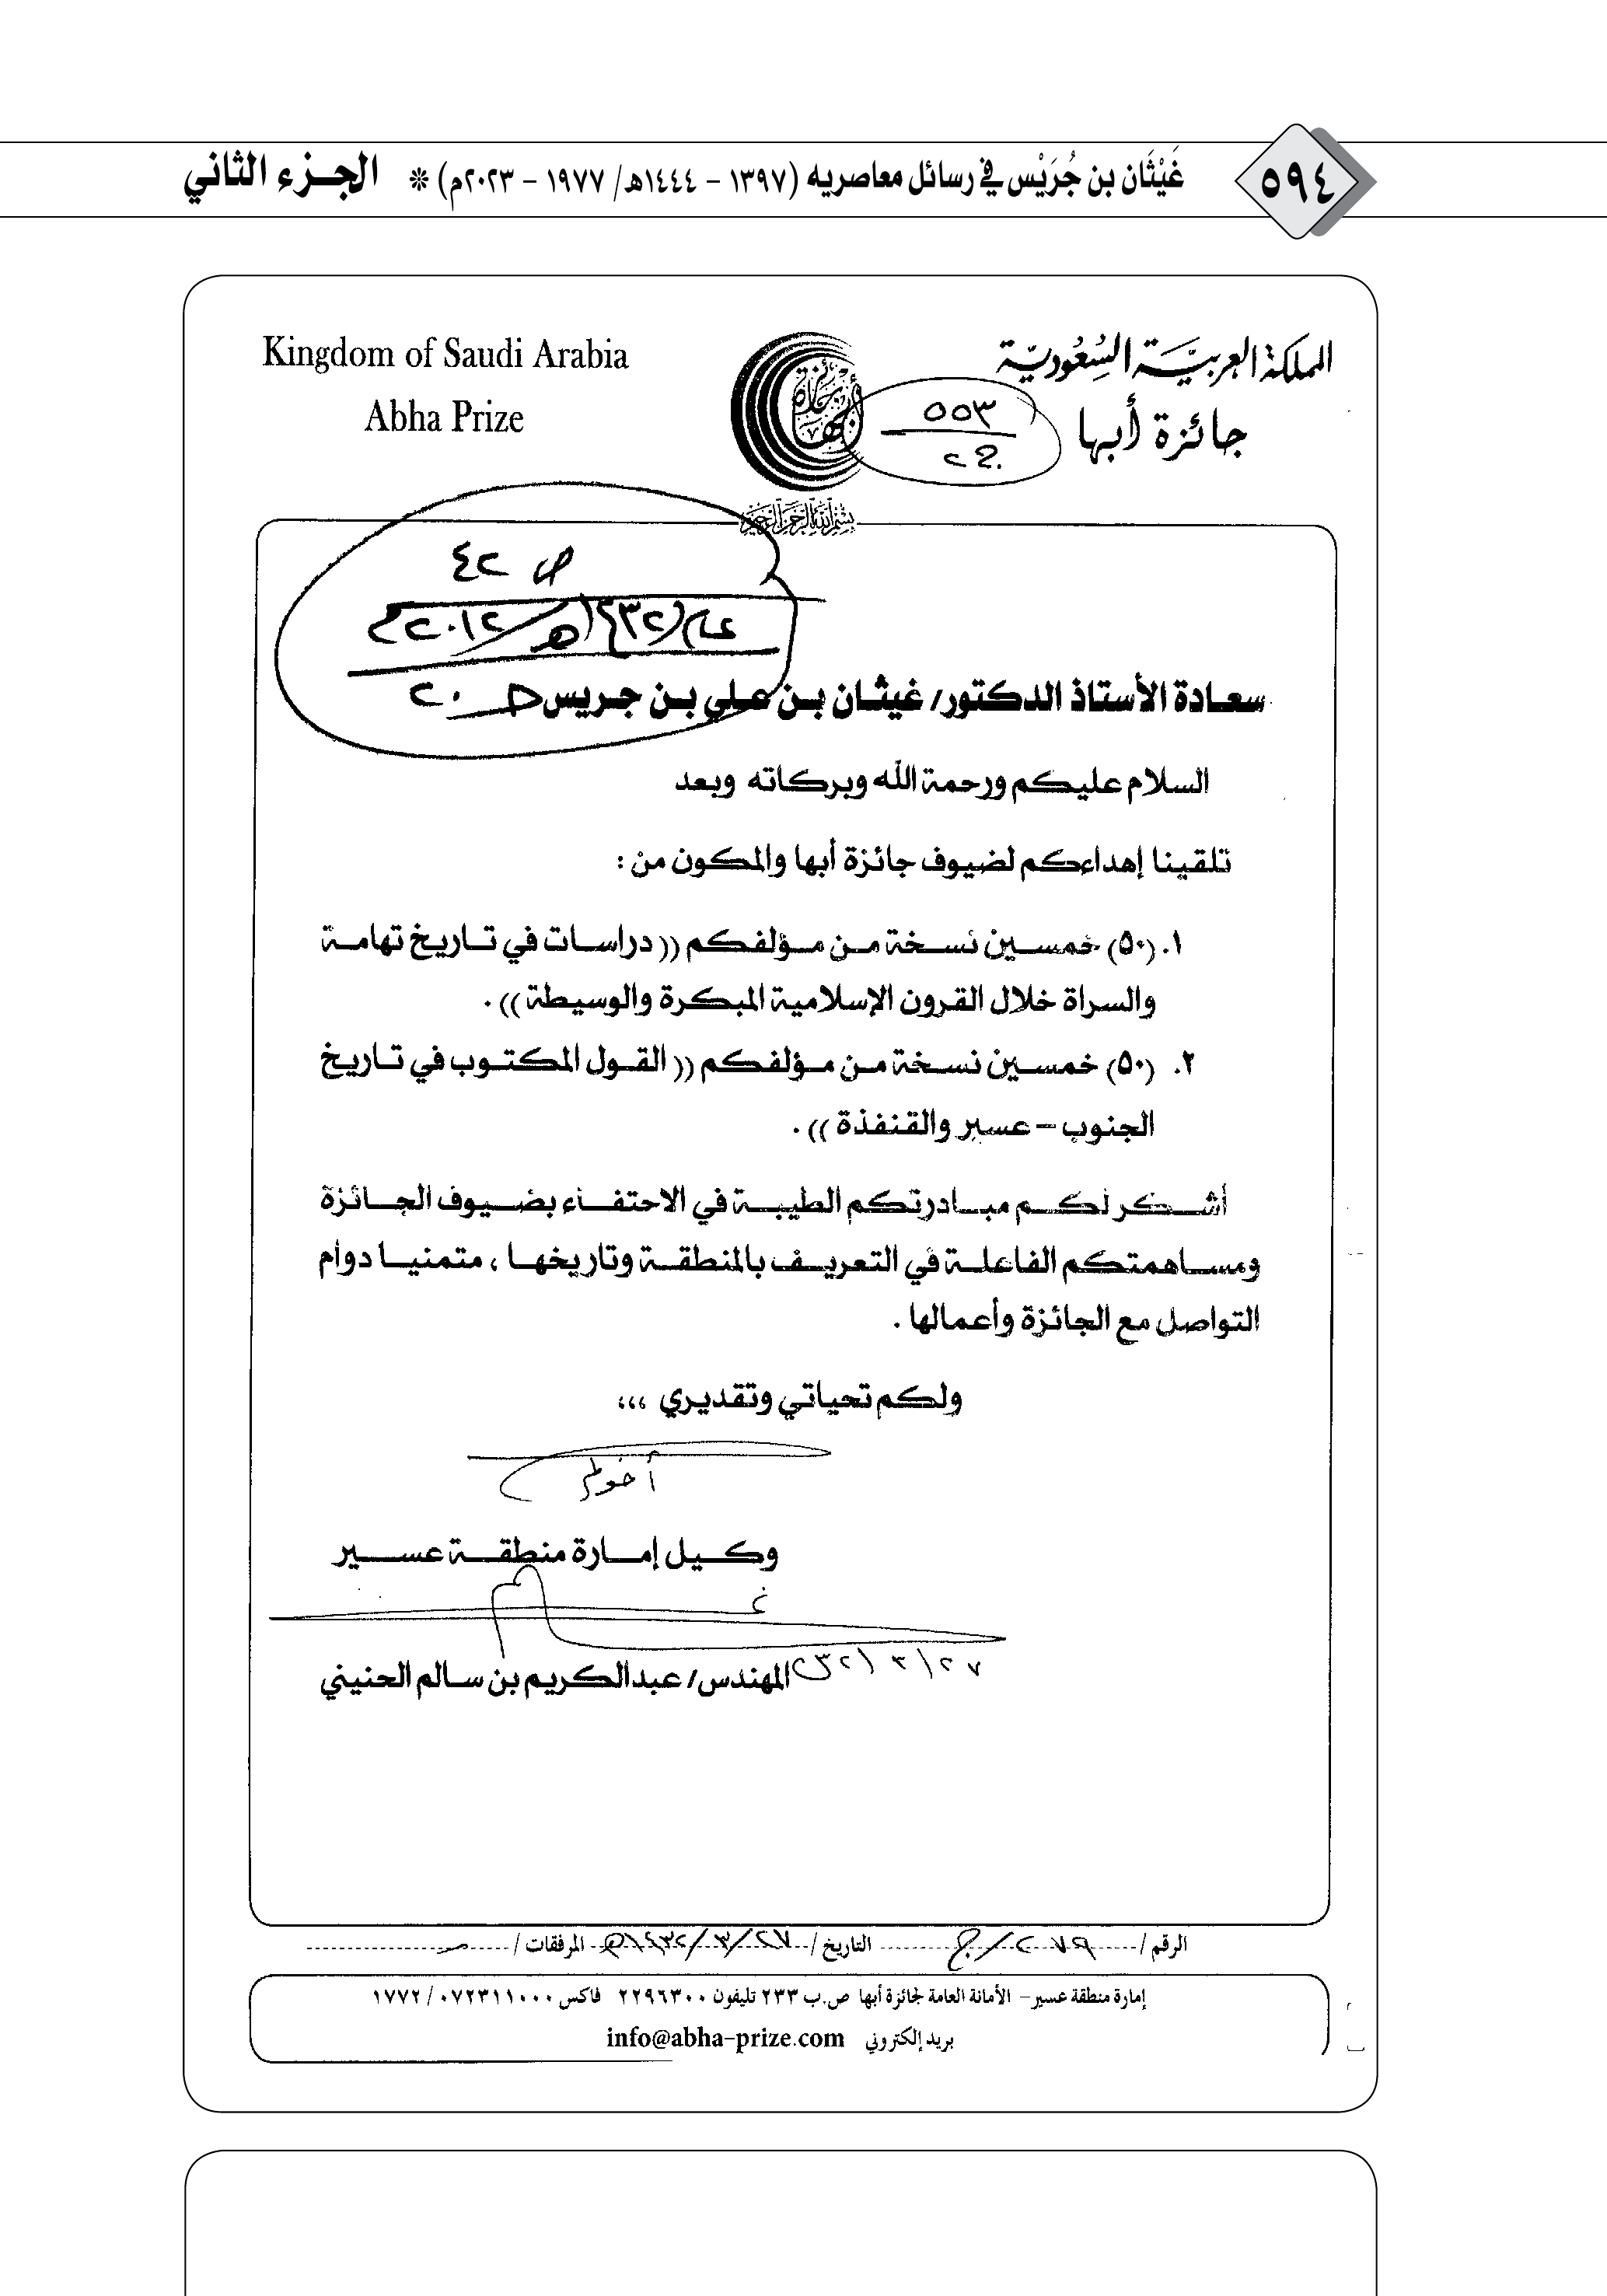 ٥٩٤
غَيْثَان بن جُرَيْس في رسائل معاصريه (١٣٩٧ - ١٤٤٤هـ/ ١٩٧٧ - ٢٠٢٣م) * الجزء الثاني
المملكة العربيَّة السُعُوديّة
Kingdom of Saudi Arabia
جائزة أبها
Abha Prize
جائزة أبها
٥٥٣
بسم الله الرحمن الرحيم
ص ٤٢
عام (١٤٣٢هـ/٢٠١٢م
سعادة الأستاذ الدكتور/ غيثان بن علي بن جريس
السلام عليكم ورحمة الله وبركاته وبعد
تلقينا إهداءكم لضيوف جائزة أبها والمكون من :
١. (٥٠) خمسين نسخة من مؤلفكم (( دراسات في تاريخ تهامة
والسراة خلال القرون الإسلامية المبكرة والوسيطة )) .
٢. (٥٠) خمسين نسخة من مؤلفكم (( القول المكتوب في تاريخ
الجنوب – عسير والقنفذة )) .
أشكر لكم مبادرتكم الطيبة في الاحتفاء بضيوف الجائزة
ومساهمتكم الفاعلة في التعريف بالمنطقة وتاريخها ، متمنيا دوام
التواصل مع الجائزة وأعمالها .
ولكم تحياتي وتقديري ،،،
أخوكم
وكيل إمارة منطقة عسير
٢٧/٣/
المهندس/ عبدالكريم بن سالم الحنيني
الرقم / ٢٧٩/ج التاريخ / ٢٧/٣/١٤٣٢هـ المرفقات /
إمارة منطقة عسير- الأمانة العامة لجائزة أبها ص.ب ٢٣٣ تليفون ٢٢٩٦٣٠٠ فاكس ٠٧٢٣١١٠٠٠ / ١٧٧٢
بريد إلكتروني info@abha-prize.com